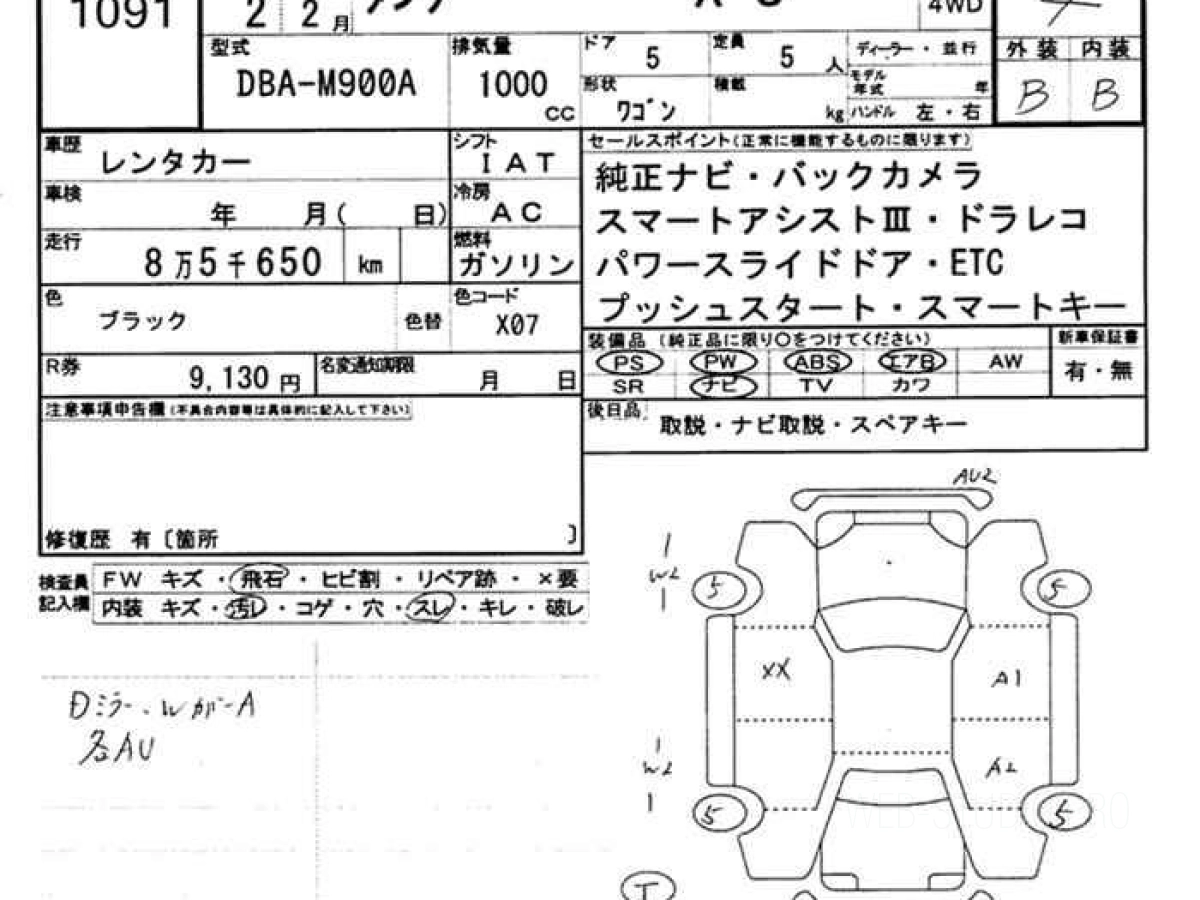 1091
2 2月
4WD
型式
DBA-M900A
排気量
1000
cc
ドア
5
定員
5
人
ディーラー・並行
形状
ワゴン
積載
kg
モデル
年式
年
ハンドル 左・右
外装 内装
B B
車歴
レンタカー
シフト
IAT
車検
年 月( 日)
冷房
AC
走行
8万5千650 km
燃料
ガソリン
色
ブラック
色替
色コード
X07
R券
9,130円
名変通知期限
月 日
セールスポイント(正常に機能するものに限ります)
純正ナビ・バックカメラ
スマートアシストⅢ・ドラレコ
パワースライドドア・ETC
プッシュスタート・スマートキー
装備品 (純正品に限り○をつけてください)
PS PW ABS エアB AW
SR ナビ TV カワ
新車保証書
有・無
後日品
取説・ナビ取説・スペアキー
注意事項申告欄(不具合内容等は具体的に記入して下さい)
修復歴 有〔箇所 〕
検査員
記入欄
FW キズ・飛石・ヒビ割・リペア跡・×要
内装 キズ・汚レ・コゲ・穴・スレ・キレ・破レ
Dミラー、Wカバー A
各AU
AU2
W2
5 5
XX
A1
W2
A2
5 5
T